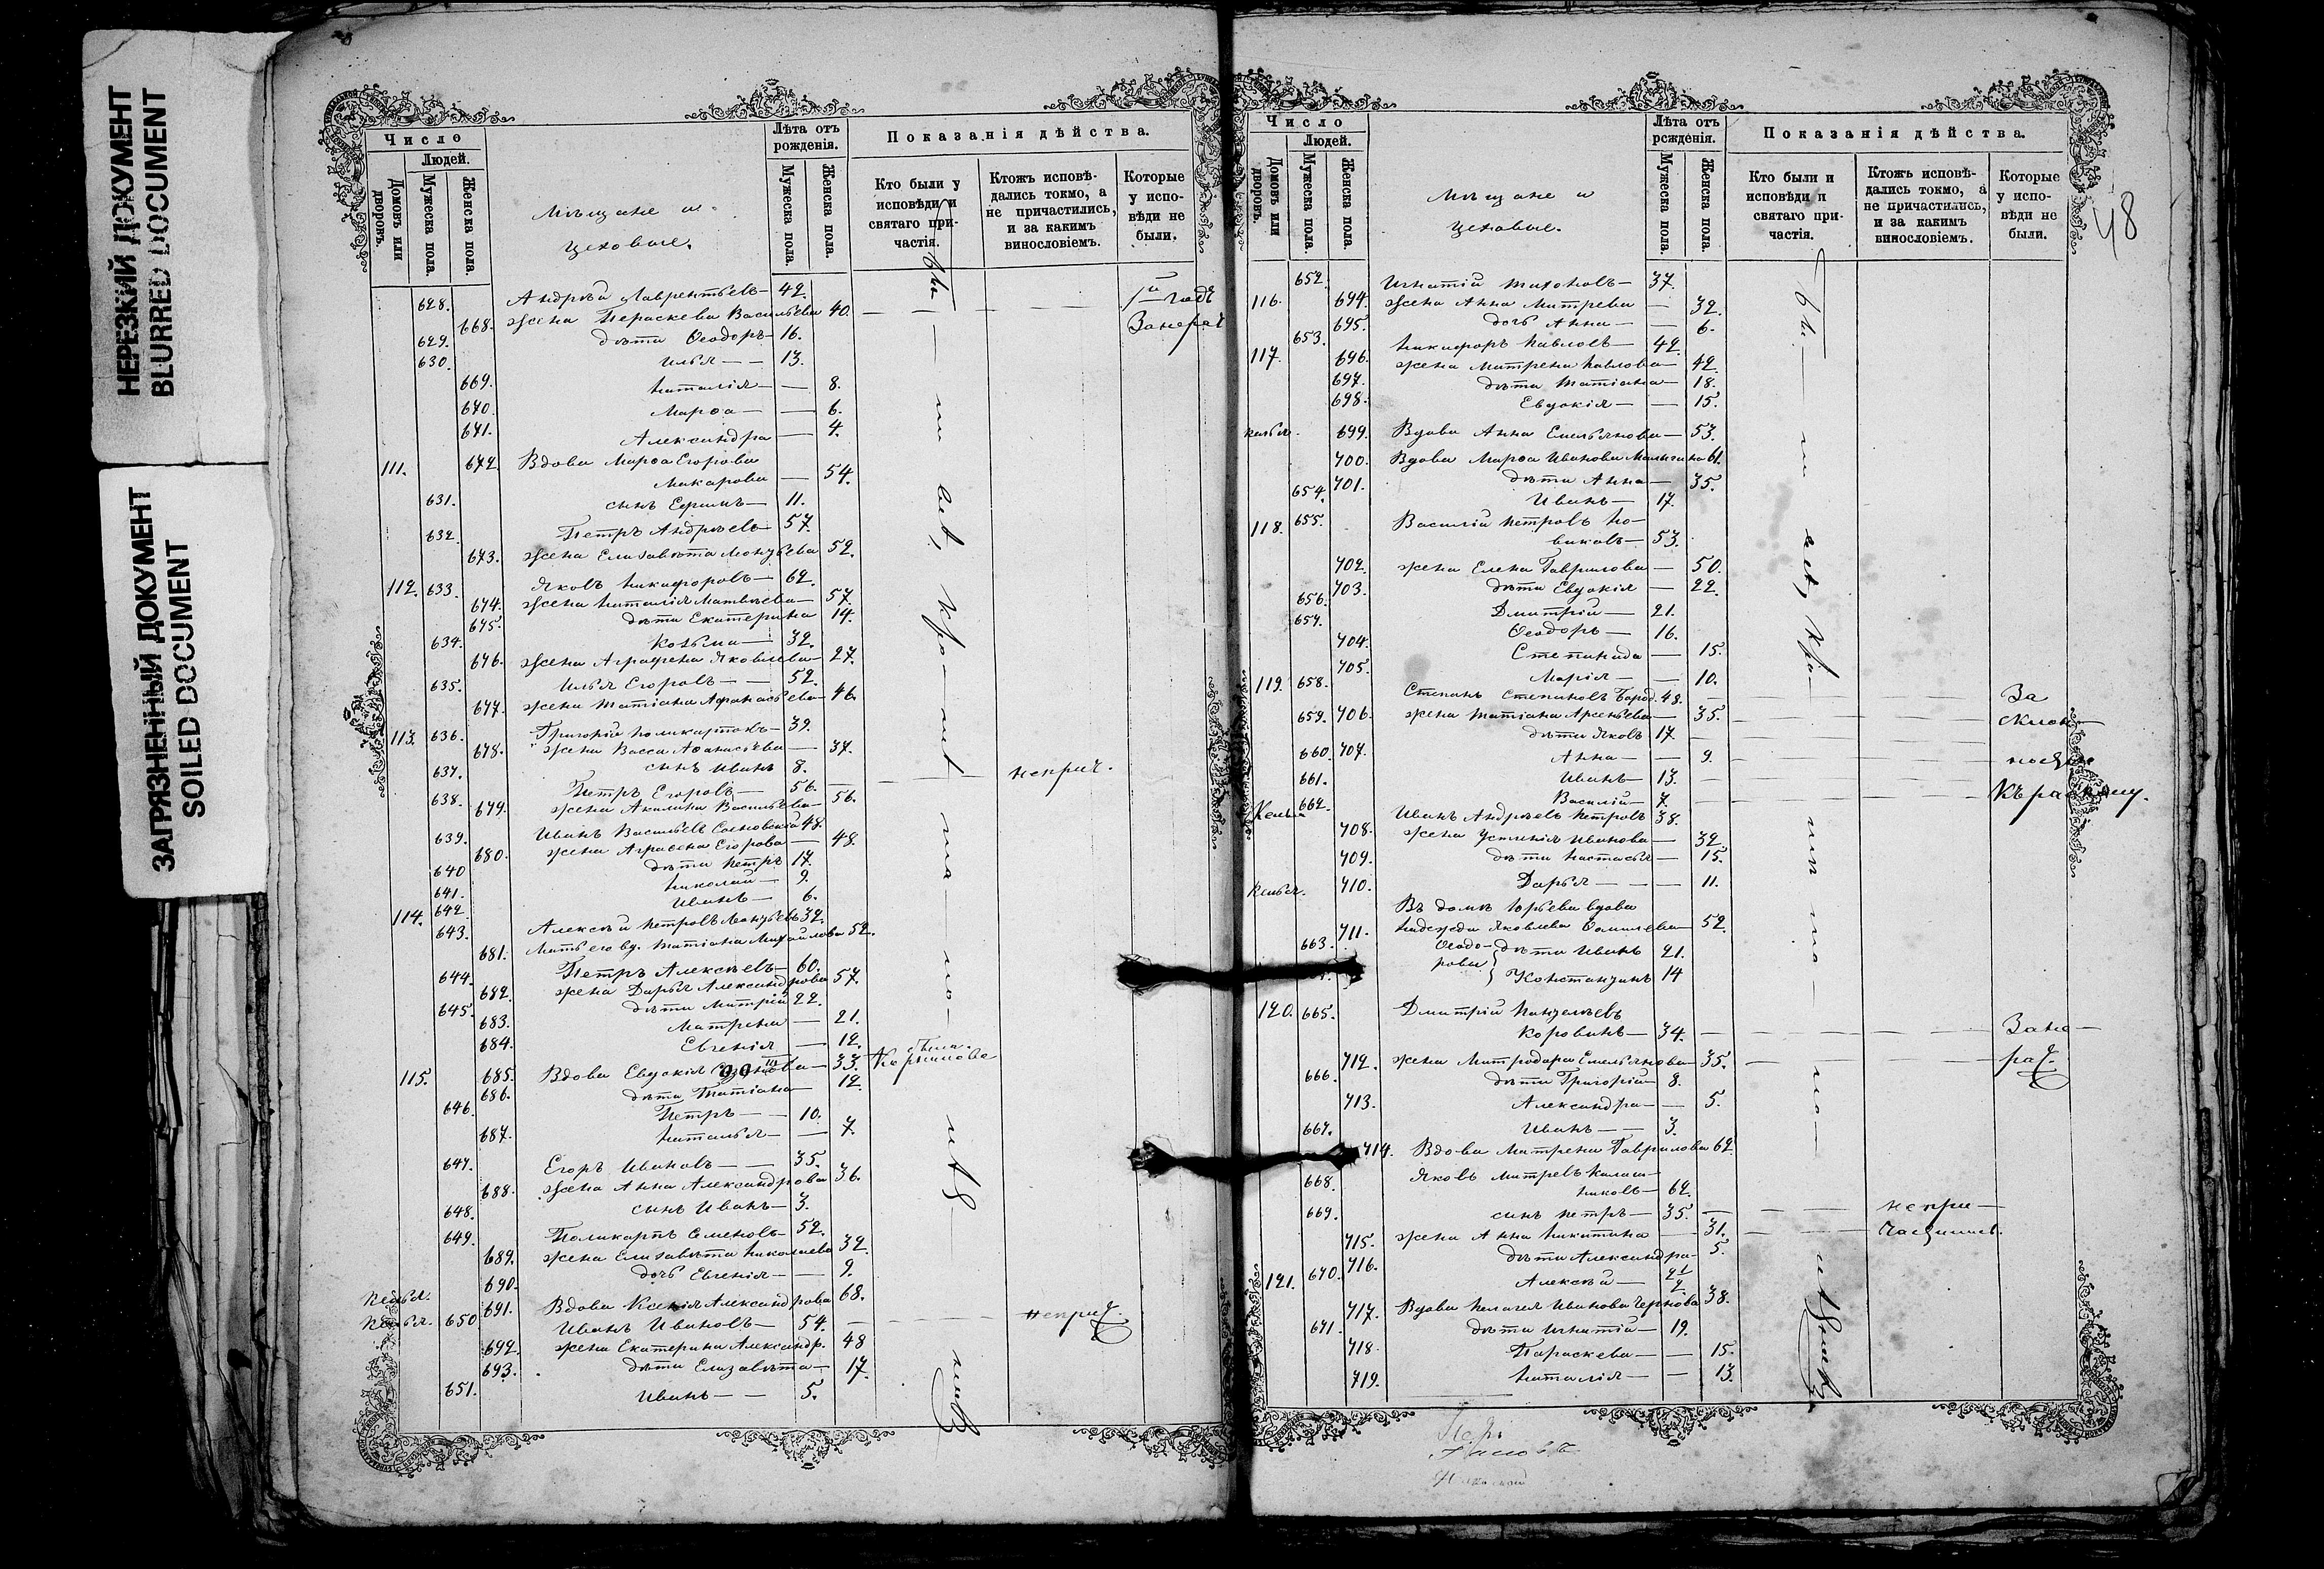 НЕРЕЗКИЙ ДОКУМЕНТ
BLURRED DOCUMENT
ЗАГРЯЗНЕННЫЙ ДОКУМЕНТ
SOILED DOCUMENT
Число
Людей.
Домовъ или дворовъ.
Мужеска пола.
Женска пола.
Мѣщане и
цеховые.
Лѣта отъ рожденія.
Мужеска пола.
Женска пола.
Показанія дѣйства.
Кто были у исповѣди и святаго причастія.
Ктожъ исповѣдались токмо, а не причастились, и за какимъ винословіемъ.
Которые у исповѣди не были.
628. Андрей Лаврентьевъ — 42.
668. жена Параскева Васильева 40.
629. дѣти Ѳеодоръ — 16.
630. Илья — — 13.
669. Наталія — — 8.
670. Марѳа — — 6.
671. Александра — 4.
111. 672. Вдова Марѳа Егорова
Макарова — 54.
631. сынъ Ефимъ — 11.
632. Петръ Андреевъ — 57.
673. жена Елизавета 52.
112. 633. Яковъ Никифоровъ — 62.
674. жена Наталія Матвѣева — 57.
675. дѣти Екатерина 14.
634. Козьма — 32.
676. жена Аграфена Яковлева — 27.
635. Илья Егоровъ — — 52.
677. жена Татіана Афанасьева — 46.
113. 636. Григорій Поликарповъ — 39.
678. жена Васса Аѳанасьева — 37.
637. сынъ Иванъ 8.
638. Петръ Егоровъ — 56. — неприч.
679. жена Акилина Васильева — 56.
639. Иванъ Васильевъ 48.
680. жена Аграфена Егорова — 48.
640 дѣти Петръ 17.
641. Николай — 9.
642 Иванъ — 6.
114. 643. Алексѣй Петровъ 32.
681. Мать его вд. Татіана Михайлова 52.
644. Петръ Алексѣевъ — 60.
682. жена Дарья Александрова 57.
645. дѣти Митрій 22.
683. Матрена — 21.
684. Евгенія — 12.
115. 685. Вдова Евдокія 33.
686. дѣти Татіана 12.
646. Петръ — — 10.
687. Наталья — — 7.
647. Егоръ Ивановъ — — 35.
688. жена Анна Александрова 36.
648. сынъ Иванъ — 3.
649. Поликарпъ Семеновъ — 52.
689. жена Елизавета Николаева 32.
690. дочь Евгенія — — 9.
Келья. 691. Вдова Ксенія Александрова 68.
Келья. 650 Иванъ Ивановъ — 54. — неприч.
692. жена Екатерина Александр. 48
693. дѣти Елизавета — 17.
651. Иванъ — — 5.
48
Число
Людей.
Домовъ или дворовъ.
Мужеска пола.
Женска пола.
Мѣщане и
цеховые.
Лѣта отъ рожденія.
Мужеска пола.
Женска пола.
Показанія дѣйства.
Кто были и исповѣди и святаго причастія.
Ктожъ исповѣдались токмо, а не причастились, и за какимъ винословіемъ.
Которые у исповѣди не были.
652. Игнатій Тихоновъ — 37.
116. 694. жена Анна Митрева — 32.
695. дочь Анна — — 6.
653. Никифоръ Павловъ — 42.
117. 696. жена Матрена Павлова — 42.
697. дѣти Татіана — 18.
698. Евдокія — — 15.
келья. 699. Вдова Анна Емельянова — 53.
700. Вдова Марѳа Иванова 61.
701. дѣти Анна — 35.
654. Иванъ — 17.
118. 655. Василій Петровъ Но-
виковъ — 53.
702. жена Елена Гаврилова — 50.
703. дѣти Евдокія — 22.
656. Дмитрій — 21.
657. Ѳеодоръ — 16.
704. Степанида — 15.
705. Марія — — 10.
119. 658. Степанъ Степановъ 48. — За
659. 706. жена Татіана Арсеньева — 35. —
дѣти Яковъ 17. —
660. 707. Анна — — 9.
661. Иванъ — 13. —
662. Василій — 7. — Къ расколу.
Келья Иванъ Андреевъ Петровъ 38.
708. жена Устинія Иванова — 32
709. дѣти Настасья — 15.
Келья. 710. Дарья — — — 11.
Въ домѣ Юрьева вдова
711. Надежда Яковлева 52.
663. Ѳеодо-
ровы дѣти Иванъ 21.
Константинъ 14
120. 665. Дмитрій
Коровинъ — 34. — Зане —
712. жена Митродора Емельянова — 35. — рад.
666. дѣти Григорій — 8.
713. Александра — — 5.
667. Иванъ — — 3.
714. Вдова Матрена Гаврилова 62.
668. Яковъ Митревъ Калаш-
никовъ — 62.
669. сынъ Петръ — 35. — непри —
715. жена Анна Никитина — 31. — частились.
716. дѣти Александра — 5.
121. 670. Алексѣй — 2½
717. Вдова Пелагея Иванова Чернова 38.
671. дѣти Игнатій — 19.
718. Параскева — — 15.
719. Наталія — — 13.